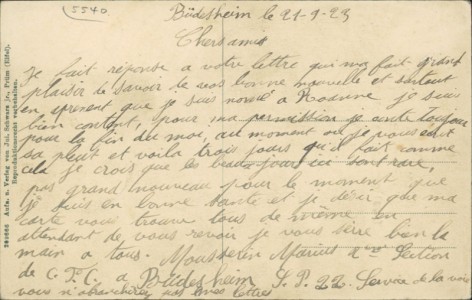 5540
Büdesheim le 21-9-23
Chers amis
Je fait réponse a votre lettre qui ma fait grand
plaisir de savoir de vos bonne nouvelle et surtout
en aprenent que je suis nomé a Roanne je suis
bien content, pour ma permission je conte toujour
pour la fin du moi, au moment ou je vous ecrit
sa pleut et voila trois jours qu'il fait comme
cela je crois que les beau jour ici sont rare,
pas grand nouveau pour le moment que
je suis en bonne santé et je désir que ma
carte vous trouve tous de meme en
attendant de vous revoir je vous serre bien la
main a tous. Mousserin Marius Section
de C.F.C. a Büdesheim S.P. 22. Service de la voie
vous n'afranchirez pas vos lettres
Aufn. u. Verlag von Jos. Schwarz jr., Prüm (Eifel).
Reproduktionsrecht vorbehalten.